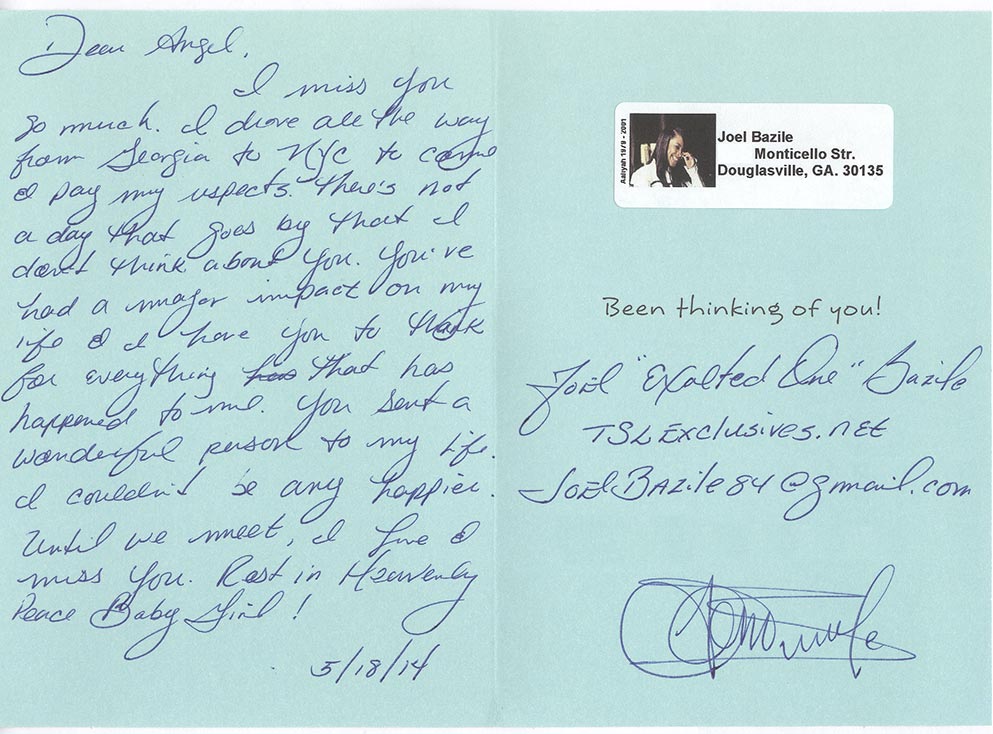 Dear Angel,
I miss you
so much. I drove all the way
from Georgia to NYC to come
& pay my respects. There's not
a day that goes by that I
don't think about you. You've
had a major impact on my
life & I have you to thank
for everything has that has
happened to me. You sent a
wonderful person to my life.
I couldn't be any happier.
Until we meet, I love &
miss you. Rest in Heavenly
Peace Baby Girl!
5/18/14
Aaliyah 1979 - 2001
Joel Bazile
Monticello Str.
Douglasville, GA. 30135
Been thinking of you!
Joel "Exalted One" Bazile
TSLExclusives.net
JoelBazile84@gmail.com